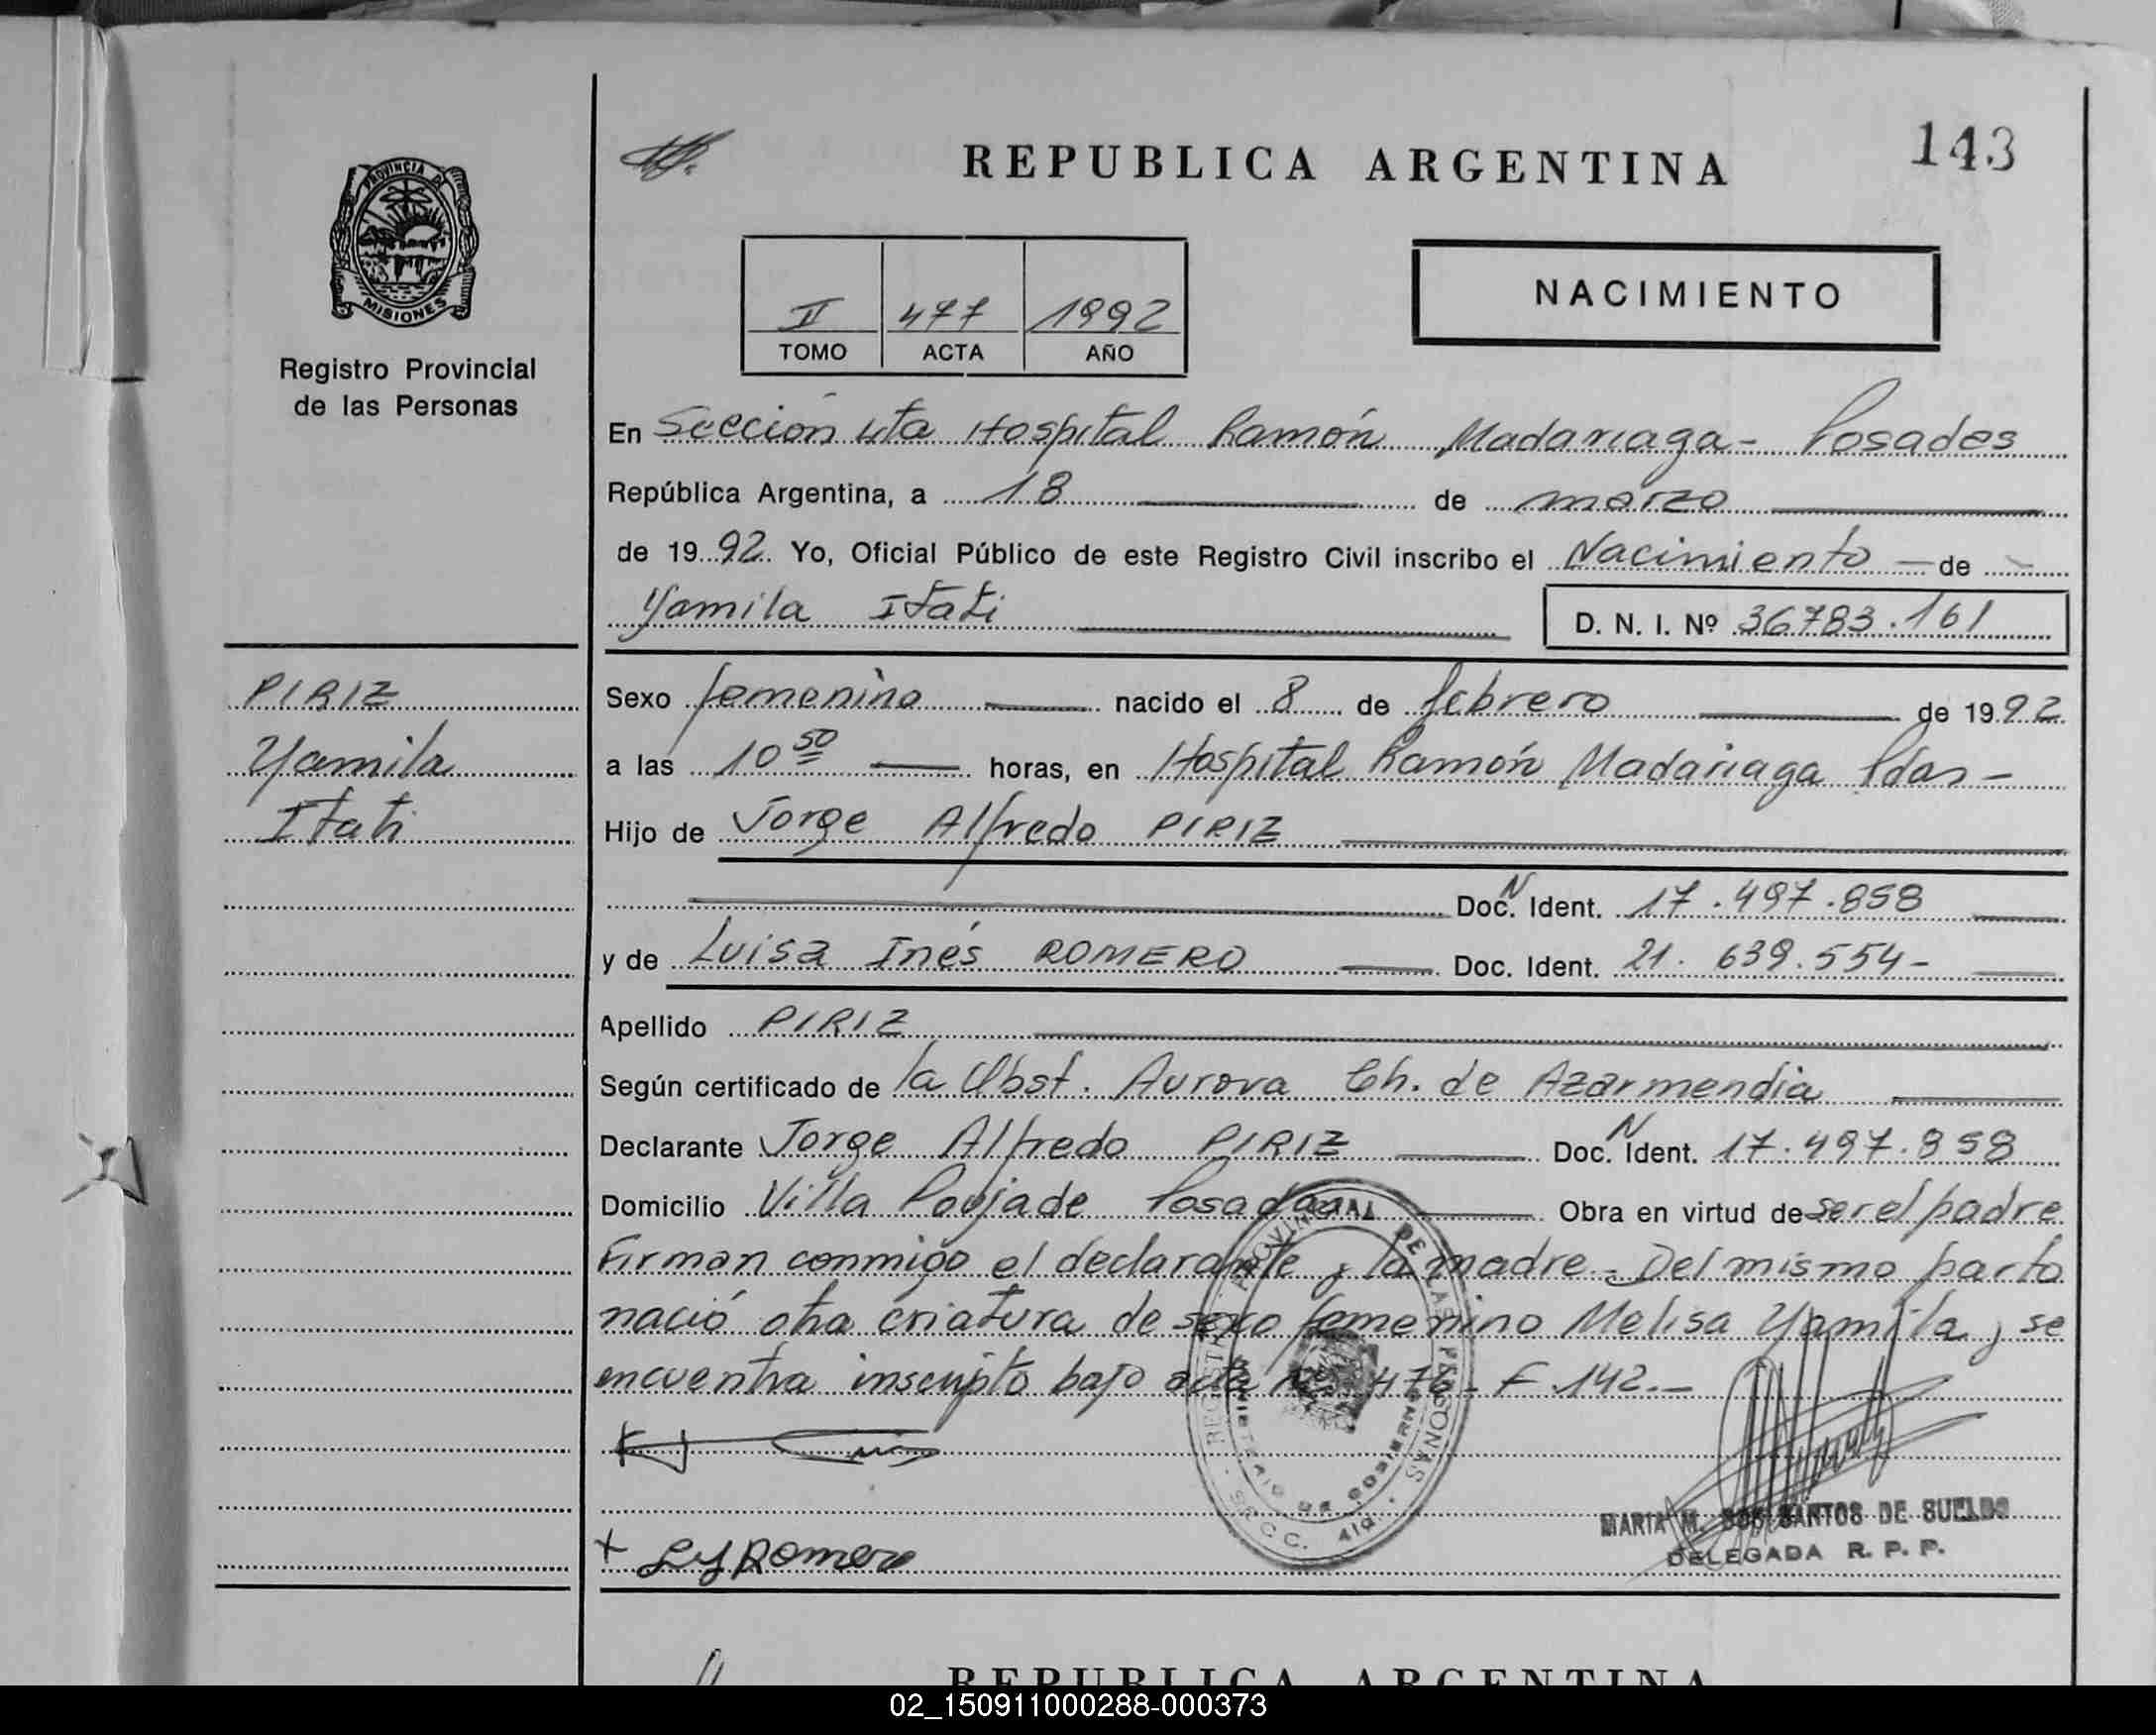 143
REPUBLICA ARGENTINA
PROVINCIA DE
MISIONES
Registro Provincial
de las Personas
II 477 1992
TOMO ACTA AÑO
NACIMIENTO
En Sección 4ta Hospital Ramón Madariaga - Posadas
República Argentina, a 18 de marzo
de 1992 Yo, Oficial Público de este Registro Civil inscribo el Nacimiento - de
Yamila Itati
D. N. I. Nº 36783.161
PIRIZ
Yamila
Itati
Sexo femenino nacido el 8 de febrero de 1992
a las 10 50 horas, en Hospital Ramón Madariaga Pdas -
Hijo de Jorge Alfredo PIRIZ
Doc. N Ident. 17.497.858
y de Luisa Inés ROMERO Doc. Ident. 21. 639.554-
Apellido PIRIZ
Según certificado de la Obst. Aurora Ch. de Azarmendia
Declarante Jorge Alfredo PIRIZ Doc. N Ident. 17.497.858
Domicilio Villa Poujade Posadas Obra en virtud de ser el padre
Firman conmigo el declarante y la madre - Del mismo parto
nació otra criatura de sexo femenino Melisa Yamila, se
encuentra inscripto bajo acta Nº 476 - F. 142.-
REGISTRO PROVINCIAL DE LAS PERSONAS
MINISTERIO DE GOBIERNO
SECC. 4ta
L I Romero
MARIA M. DOS SANTOS DE SUELDO
DELEGADA R. P. P.
REPUBLICA ARGENTINA
02_150911000288-000373